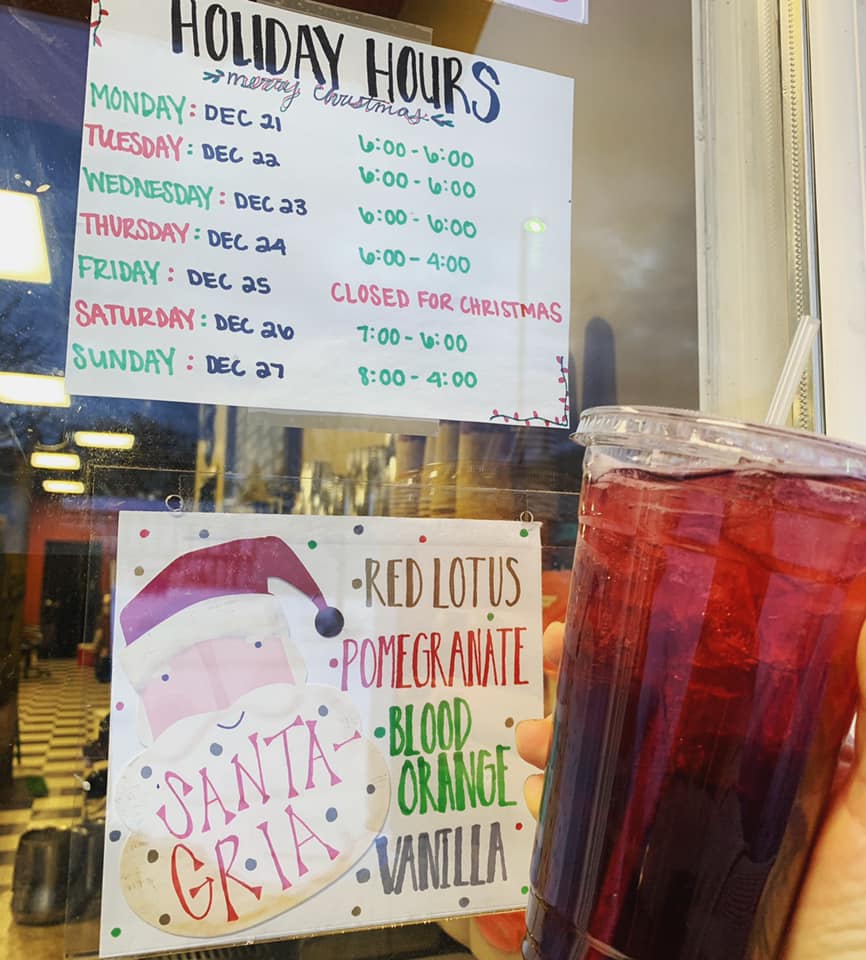 HOLIDAY HOURS
merry christmas
MONDAY: DEC 21 6:00-6:00
TUESDAY: DEC 22 6:00-6:00
WEDNESDAY: DEC 23 6:00-6:00
THURSDAY: DEC 24 6:00-4:00
FRIDAY: DEC 25 CLOSED FOR CHRISTMAS
SATURDAY: DEC 26 7:00-6:00
SUNDAY: DEC 27 8:00-4:00
SANTA-
GRIA
•RED LOTUS
•POMEGRANATE
•BLOOD
ORANGE
•VANILLA